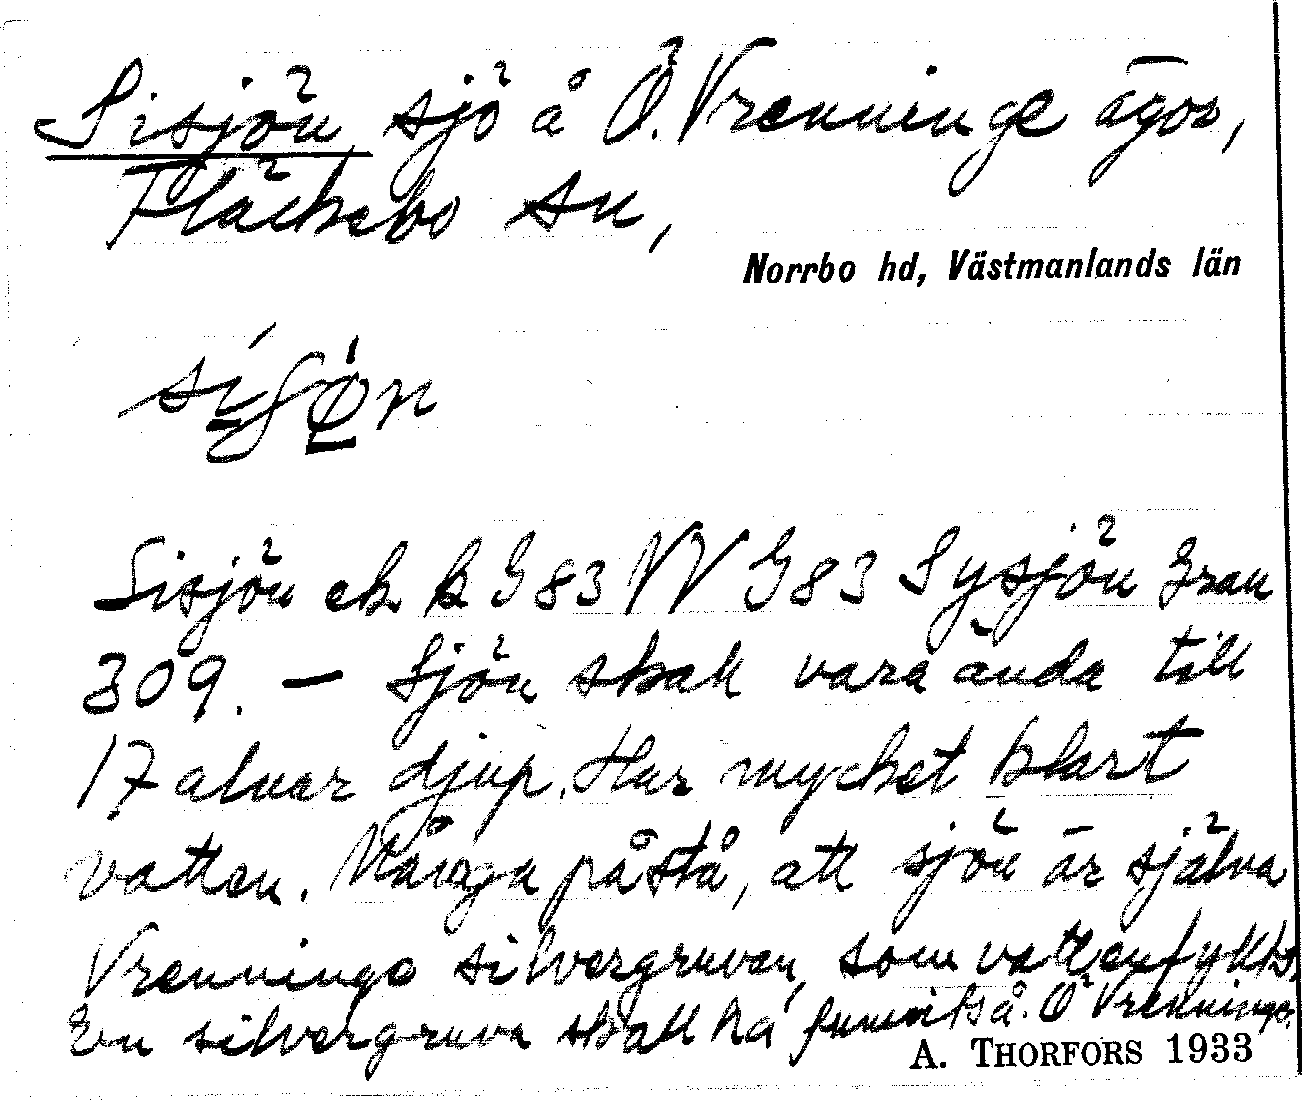 Sisjön, sjö å Ö. Vrenninge ägor,
Fläckebo sn,
Norrbo hd, Västmanlands län
Sisjön ek k G 83 VV G 83 Sysjön Gran
309. — Sjön skall vara ända till
17 alnar djup. Har mycket klart
vatten. Många påstå, att sjön är själva
Vrenninge silvergruvan, som vattenfyllts.
En silvergruva skall ha funnits å Ö Vrenninge.
A. THORFORS 1933